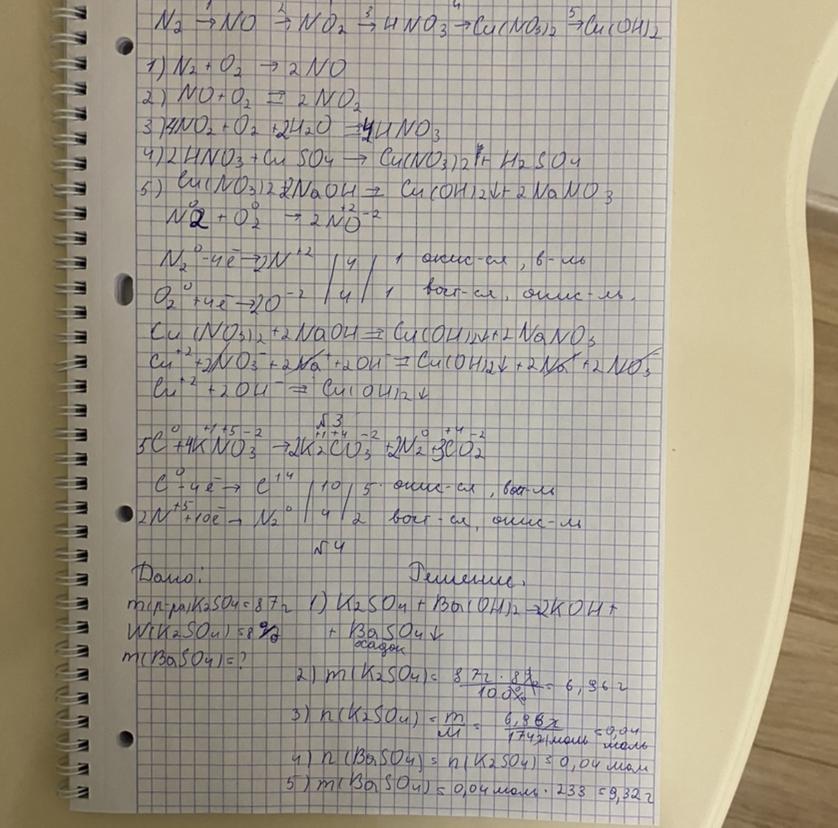 N₂ →¹ NO →² NO₂ →³ HNO₃ →⁴ Cu(NO₃)₂ →⁵ Cu(OH)₂
1) N₂ + O₂ → 2NO
2) NO + O₂ = 2NO₂
3) 4NO₂ + O₂ + 2H₂O = 4HNO₃
4) 2HNO₃ + CuSO₄ → Cu(NO₃)₂ + H₂SO₄
5) Cu(NO₃)₂ 2NaOH = Cu(OH)₂↓ + 2NaNO₃
N⁰2 + O₂⁰ → 2N⁺²O⁻²
N₂⁰ - 4ē → 2N⁺² | 4 | 1 окис-ся, в-ль
O₂⁰ + 4ē → 2O⁻² | 4 | 1 вост-ся, окис-ль.
Cu(NO₃)₂ + 2NaOH = Cu(OH)₂↓ + 2NaNO₃
Cu⁺² + 2NO₃⁻ + 2Na⁺ + 2OH⁻ = Cu(OH)₂↓ + 2Na⁺ + 2NO₃⁻
Cu⁺² + 2OH⁻ = Cu(OH)₂↓
№3
5C⁰ + 4K⁺¹N⁺⁵O₃⁻² → 2K₂⁺¹C⁺⁴O₃⁻² + 2N₂⁰ + 3C⁺⁴O₂⁻²
C⁰ - 4ē → C⁺⁴ | 10 | 5 окис-ся, вост-ль
2N⁺⁵ + 10ē → N₂⁰ | 4 | 2 вост-ся, окис-ль
№4
Дано: Решение.
m(р-ра)K₂SO₄ = 87г 1) K₂SO₄ + Ba(OH)₂ → 2KOH +
W(K₂SO₄) = 8% + BaSO₄↓
осадок
m(BaSO₄) = ?
2) m(K₂SO₄) = 87г · 8% / 100% = 6,96 г
3) n(K₂SO₄) = m/M = 6,96г / 174г/моль = 0,04 моль
4) n(BaSO₄) = n(K₂SO₄) = 0,04 моль
5) m(BaSO₄) = 0,04 моль · 233 = 9,32г